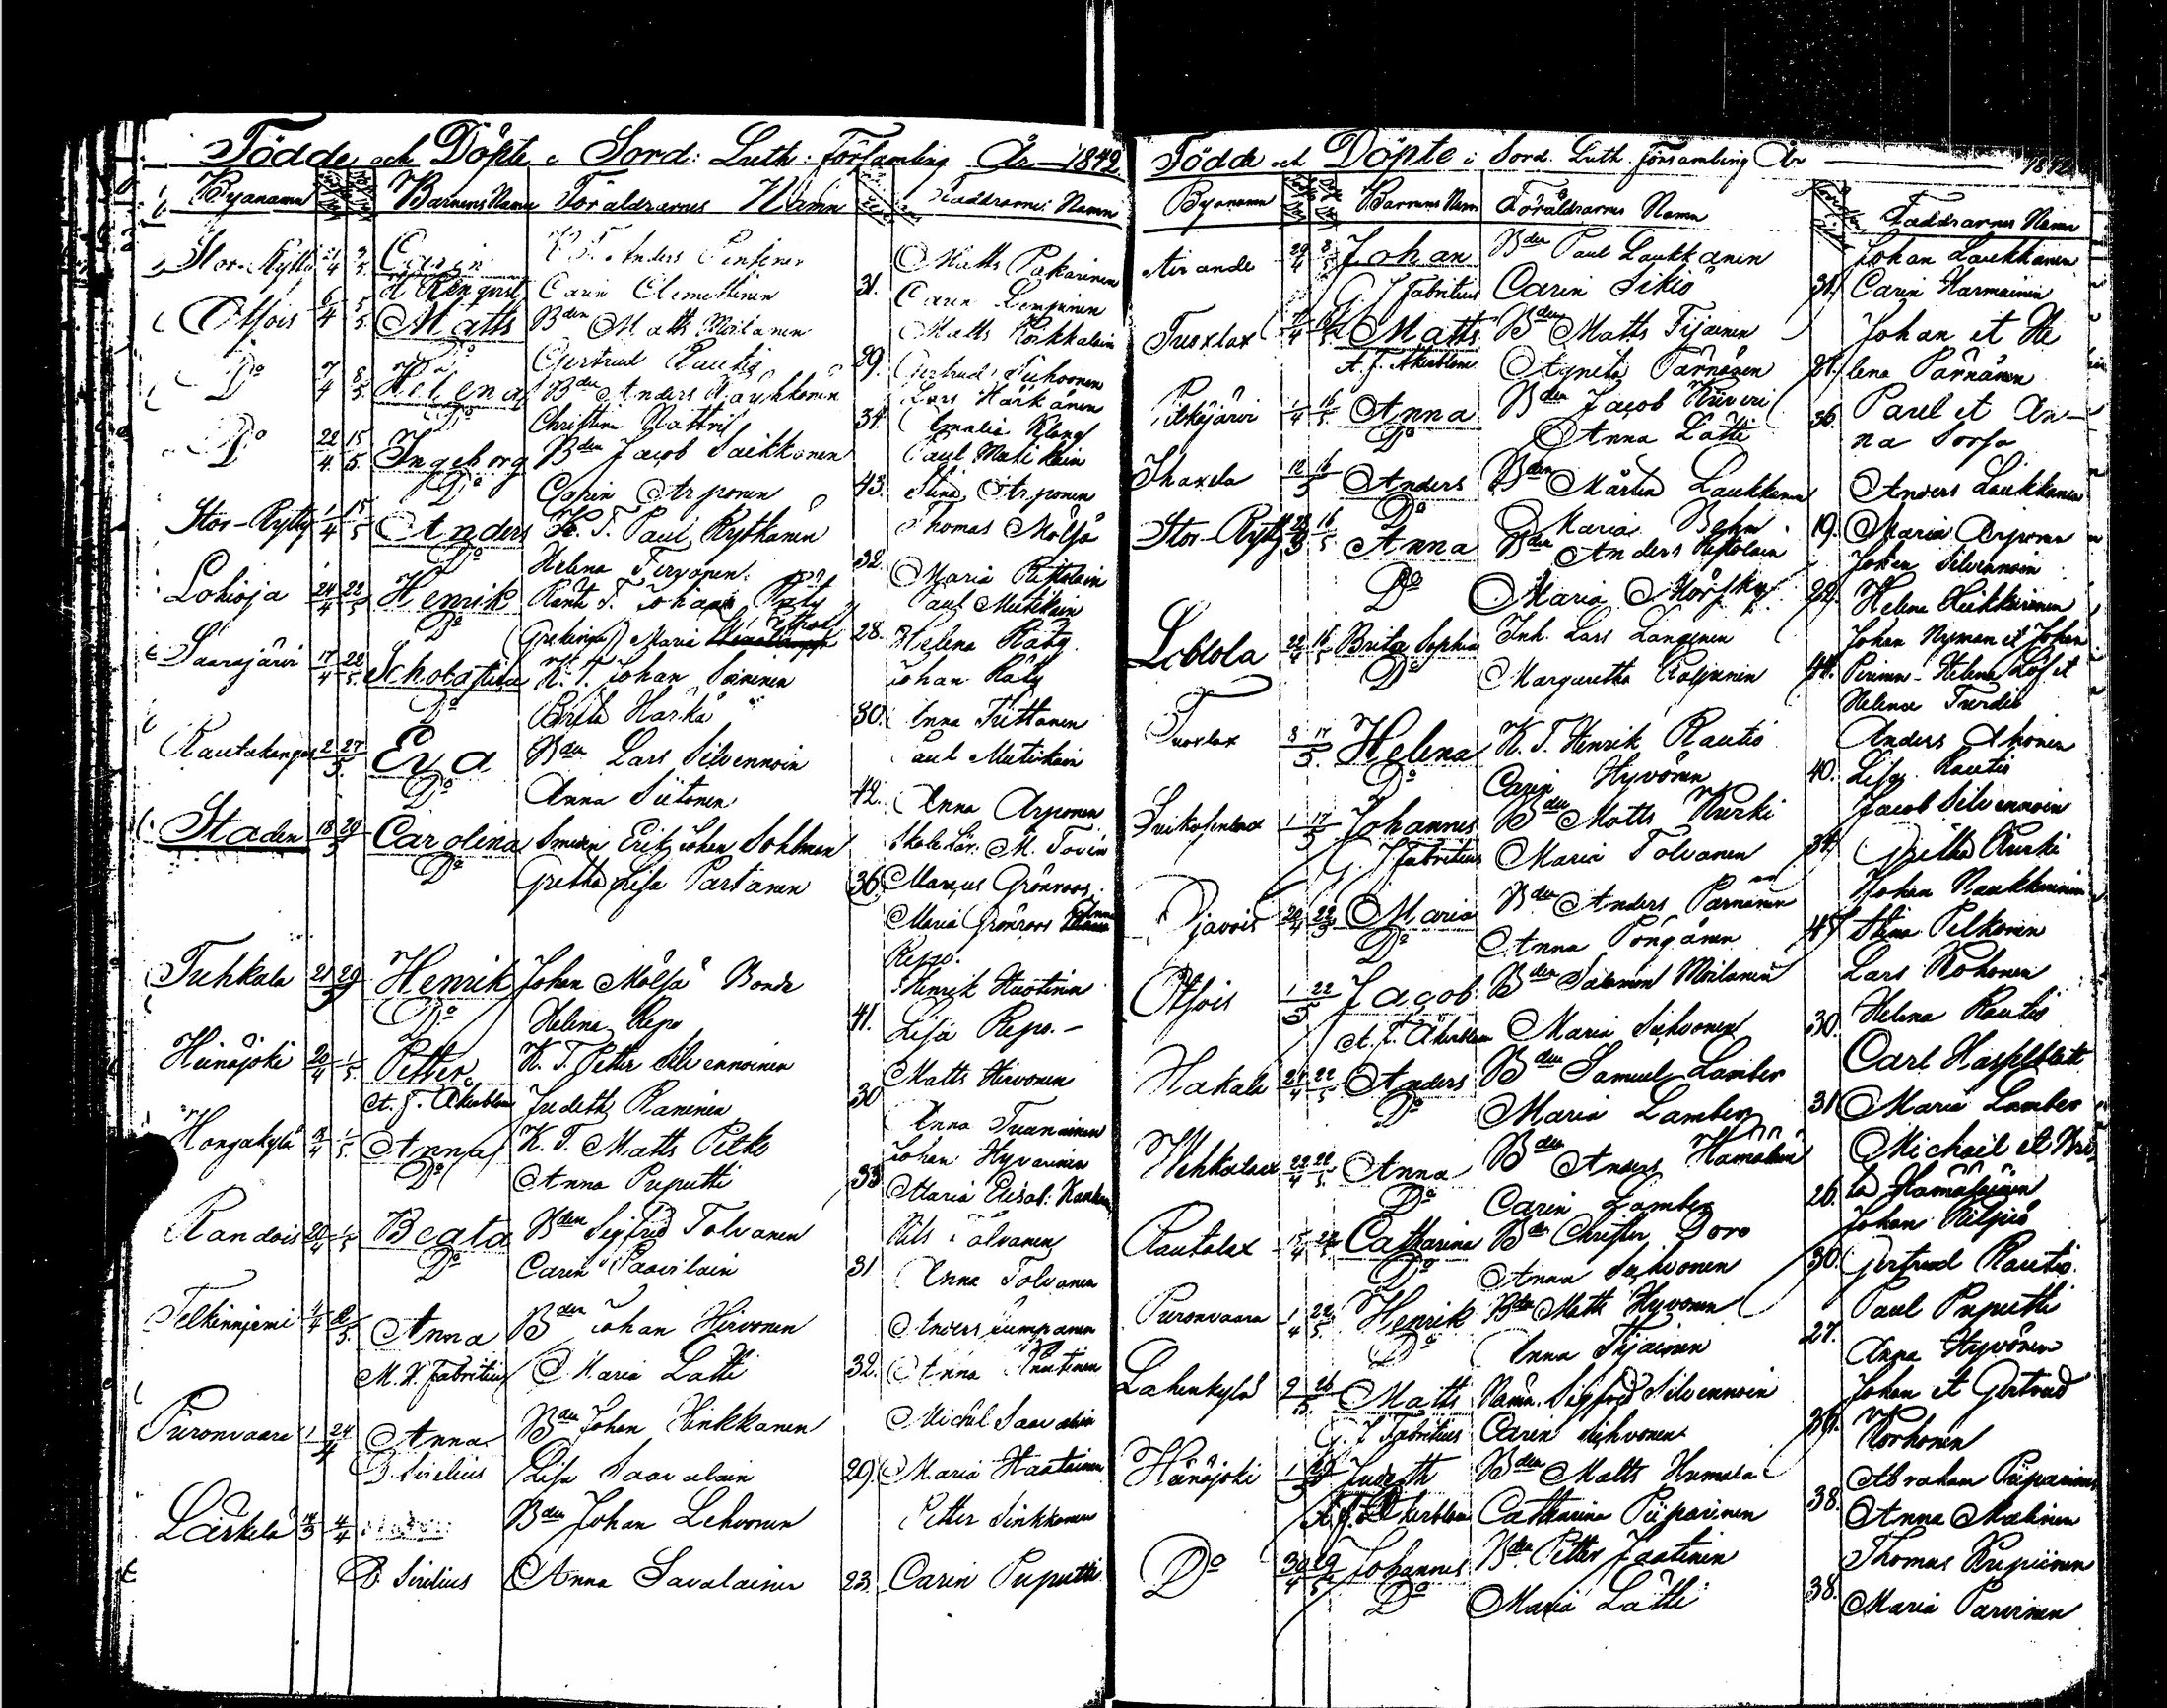 Födde och Döpte i Sord: Luth: Församling År 1842
Byanamn Barnens Namn Föräldrarnes Namn Faddrarnes Namn
Stor-Rytty 21/4 3/5 Carin K. T. Anders Matts Pakarinen
A Renqvist Carin Clemettinen 31. Carin
Otsois 6/4 5/5 Matts Bden Matts Moilanen Matts Korkkalain
Do Gertrud Rautio 29. Gertrud Sihvonen
Do 7/4 8/5 Helena Bden Anders Räyhkönen Lars Härkönen
Do Christina Nattril 34. Amalia Klang
Do 22/4 15/5 Ingeborg Bden Jacob Saikkonen Paul Mutikain
Do Carin Arponen 43. Stina Arponen
Stor-Rytty 1/4 15/5 Anders K. T. Paul Rytkönen Thomas Mölsä
Do Helena Tervonen 32. Maria Ristolain
Lohioja 24/4 22/5 Henrik T. Johan Räty Paul Mutikain
Do Maria 28. Helena Räty
Saarajärvi 17/4 22/5 Scholastica K. T. Johan Soininen Johan Räty
Do Brita Härkä 30. Anna Tiittanen
Rautakangas 2/5 27/5 Eva Bden Lars Silvennoin Paul Mutikain
Do Anna Siitonen 42. Anna Arponen
Staden 18/5 29/5 Carolina Smeden Eric Johan Sohlman Skolelär. M. Tovin
Do Gretha Lisa Partanen 36. Marcus Grönroos
Maria Grönroos Anna
Repo.
Tuhkala 21/5 29/5 Henrik Johan Mölsä Bonde Henrik Huotinen
Do Helena Repo 41. Lisa Repo.-
Heinäjoki 20/4 1/5 Petter K. T. Petter Silvennoinen Matts Hirvonen
A. J. Åkerblom Judith Raninen 30 Anna Tuunainen
Hongakylä /4 1/5 Anna K. T. Matts Pitko Johan Hyvärinen
Do Anna Puputti 33 Maria Elisab:
Randois 20/4 1/5 Beata Bden Sigfrid Tolvanen Nils Tolvanen
Do Carin Paavilain 31 Anna Tolvanen
Telkinniemi 1/4 2/5 Anna Bden Johan Hirvonen Anders Kumpanen
M. W. Fabritius Maria Lätti 32. Anna
Puronvaara 1/4 24/4 Anna Bden Johan Hinkkanen Michel Saavalain
B. Sirelius Lisa Saavalain 29. Maria Haatainen
Lärkelä 14/3 4/4 Bden Johan Lehvonen Petter Sinkkonen
B. Sirelius Anna Savolainen 23. Carin Puputti
Födde och Döpte i Sord. Luth. Församling År 1842
Byanamn Barnens Namn Föräldrarnes Namn Faddrarnes Namn
Airande 29/4 8/5 Johan Bden Paul Laukkanen Johan Laukkanen
G. J Fabritius Carin Sikiö 31. Carin Harmainen
Tuoxlax 7/4 Matts Bden Matts Tijainen Johan et He
A. J. Åkerblom Agneta Pärnänen 27. lena Pärnänen
Pitkäjärvi 1/4 16/5 Anna Bden Jacob Kiiveri Paul et An-
Do Anna Lätti 36. na Sorsa
Ihaxela 12/5 16/5 Anders Bden Mårten Laukkanen Anders Laukkanen
Do Maria Behm 19. Maria Arponen
Stor-Rytty 16/5 Anna Bden Anders Ristolain Johan Silvennoin
Do Maria Mörsky 22. Helena
Leblola 22/4 16/5 Brita Sophia Inh. Lars Langinen Johan Nyman et Johan
Do Margaretha Poljanen 44. Pirinen- Helena Löf et
Helena Turdin
Tuoxlax 8/5 17/5 Helena K. T. Henrik Rautio Anders Ahonen
Do Carin Hyvönen 40. Lisa Rautio
1/5 17/5 Johannes Bden Matts Kurki Jacob Silvennoin
G. J Fabritius Maria Tolvanen 34. Gretha Kurki
Djavois 20/4 22/5 Maria Bden Anders Pärnänen Johan Naukkarinen
Do Anna Pöngänen 45. Stina Pelkonen
Otsois 1/5 22/5 Jacob Bden Salomon Moilanen Lars Kohonen
A. J. Åkerblom Maria Sihvonen 30. Helena Rautio
Hakala 21/4 22/5 Anders Bden Samuel Lamber Carl Hasselblatt
Do Maria Lamber 31 Maria Lamber
Wehkalax 22/4 22/5 Anna Bden Anders Hämäläin Michael et Bri-
Do Carin Lamber 26. ta Hämäläinen
Rautalax 15/4 22/5 Catharina Bden Christer Doro Johan Kilpiö
Do Anna Sihvonen 30. Gertrud Rautio.
Puronvaara 1/4 22/5 Henrik Bden Matts Hyvönen Paul Puputti
Do Anna Tijainen 27. Anna Hyvönen
Lahenkylä 9/5 26/5 Matts Nämn. Sigfrid Silvennoin Johan et Gertrud
G. J Fabritius Carin Sihvonen 36. Korhonen
Heinäjoki 1/5 Judith Bden Matts Humala Abraham Piiparinen
A. J. Åkerblom Catharina Piiparinen 38. Anna Malinen
Do 30/4 29/5 Johannes Bden Petter Jaatinen Thomas
Do Maria Lätti 38. Maria Parvinen